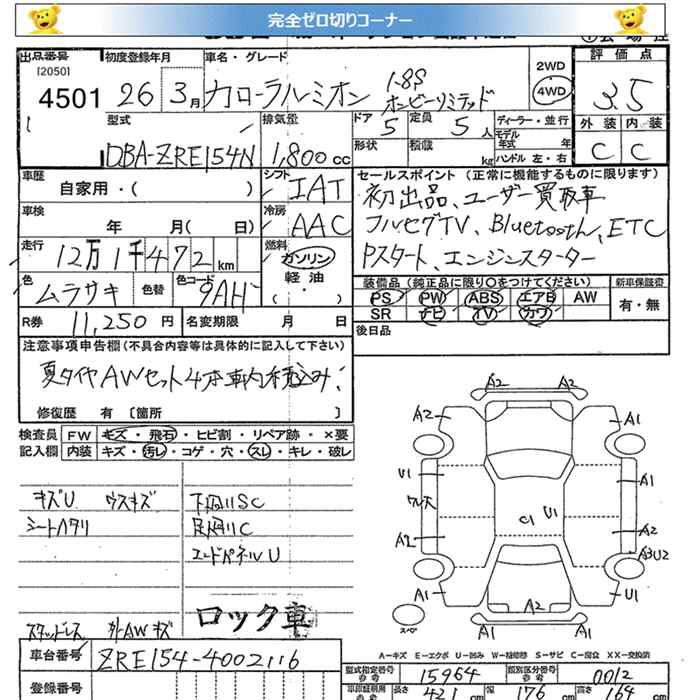 完全ゼロ切りコーナー
出品番号 初度登録年月 車名・グレード 2WD 評価点
[2050]
4501 26年 3月 カローラルミオン 1.8S 4WD 3.5
型式 排気量 ドア 5 定員 5人 ディーラー・並行 外装 内装
モデル年式 年
DBA-ZRE154N 1,800cc 形状 積載 kg ハンドル 左・右 C C
車歴 シフト セールスポイント (正常に機能するものに限ります)
自家用・( ) IAT 初出品、ユーザー買取車
車検 冷房 フルセグTV、Bluetooth、ETC
年 月( 日) AAC Pスタート、エンジンスターター
走行 燃料
12万1千472km ガソリン
軽油
色 色替 色コード (・) 装備品 (純正品に限り○をつけてください) 新車保証書
ムラサキ 9AH PS PW ABS エアB AW 有・無
R券 11,250円 名変期限 月 日 SR ナビ TV カワ
後日品
注意事項申告欄 (不具合内容等は具体的に記入して下さい)
夏タイヤAWセット4本車内積込み!
修復歴 有 〔箇所 〕
検査員 FW キズ・飛石・ヒビ割・リペア跡・×要
記入欄 内装 キズ・汚レ・コゲ・穴・スレ・キレ・破レ
A2
A2 A1
キズU ウスキズ 下廻リSC
U1 A1
シートヘタリ 足廻リC
C1 U1
エンドパネルU
A2 A2
A3U2
A2 U1
ロック車
スタッドレス 外AWキズ
スペア A1 A1
車台番号 ZRE154-4002116
A―キズ E―エクボ U―凹み W―補修跡 S―サビ C―腐食 XX―交換済
型式指定番号 参考 15964 類別区分番号 参考 0012
登録番号
長さ 421cm 幅 176cm 高さ 164cm